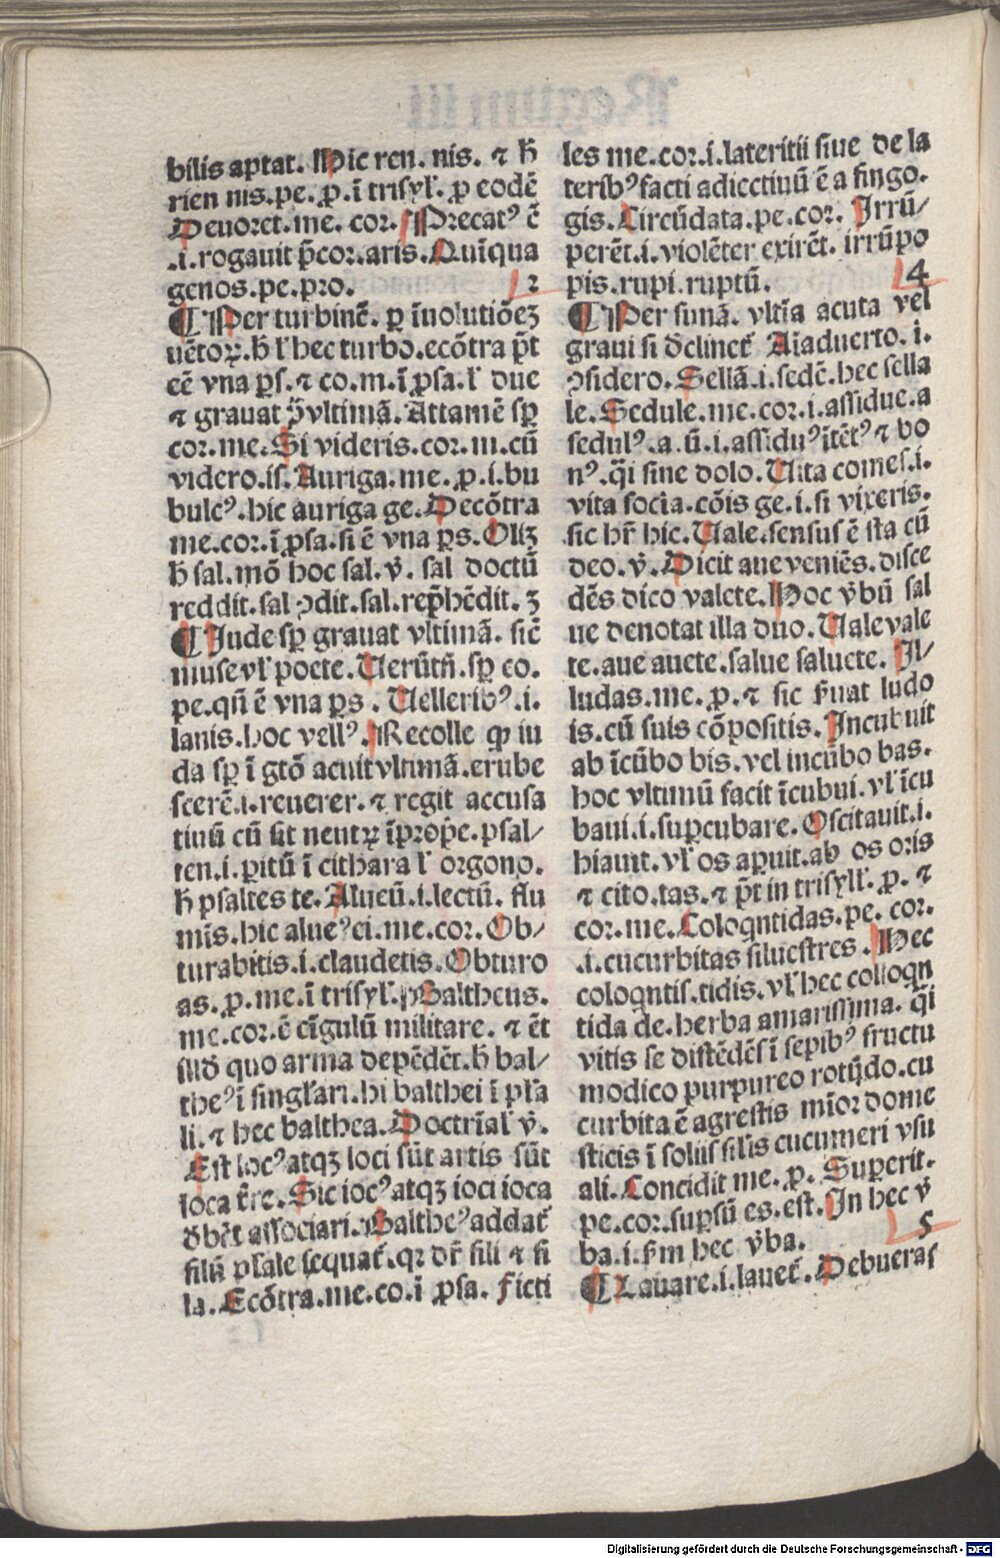 bilis aptat. Hic ren. nis. ⁊ ħ
rien nis. pe. ꝓ. ī trisyľ. ꝓ eodē
Deuoret. me. cor. Precatꝰ ē
.i. rogauit p̄cor. aris. Quīqua
genos. pe. pro. 2
¶ Per turbinē. ꝑ īuolutiōeʒ
uētoꝝ. ħ ľ hec turbo. ecōtra p̄t
eē vna ꝑs. ⁊ co. m. ī ꝓsa. ľ due
⁊ grauat p̄vltimā. Attamē sꝑ
cor. me. Si videris. cor. m. cū
videro. is. Auriga. me. ꝓ. i. bu
bulcꝰ. hic auriga ge. Decōtra
me. cor. ī ꝓsa. si ē vna ꝑs. Olīʒ
ħ sal. mō hoc sal. v̄. sal doctū
reddit. sal ꝯdit. sal. rep̄hēdit. ʒ
¶ Jude sꝑ grauat vltimā. sic̄
muse vľ poete. Uerūtn̄. sꝑ co.
pe. qn̄ ē vna ꝑs. Uelleribꝰ. .i.
lanis. hoc vellꝰ. Recolle ꝙ iu
da sꝑ ī gtō acuit vltimā. erube
scerē. i. reuerer. ⁊ regit accusa
tiuū cū sit neutꝝ īprop̄e. psal/
ten. i. ꝑitū ī cithara ľ orgono.
ħ psaltes te. Alueū. i. lectū. flu
mīs. hic alueꝰ ei. me. cor. Ob/
turabitis. i. claudetis. Obturo
as. ꝓ. me. ī trisyľ. Baltheus.
me. cor. ē cīgulū militare. ⁊ ēt
illđ quo arma depēdēt. ħ bal/
theꝰ ī singľari. hi balthei ī pľa
li. ⁊ hec balthea. Doctrīal̄ v̄.
Est locꝰ atqʒ loci sūt artis sūt
loca t̄re. Sic iocꝰ atqʒ ioci ioca
đbēt associari. Baltheꝰ addat̄
filū pľale sequat̄. qꝛ dr̄ fili ⁊ fi
la. Ecōtra. me. co. ī ꝓsa. Ficti
les me. cor. i. lateritii siue de la
teribꝰ facti adiectiuū ē a fingo.
gis. Circūdata. pe. cor. Irrū/
perēt. i. violēter exirēt. irrūpo
pis. rupi. ruptū. 4
¶ Per sunā. vltīa acuta vel
graui si đclinet̄ Aīaduerto. i.
ꝯsidero. Sellā. i. sedē. hec sella
le. Sedule. me. cor. i. assidue. a
sedulꝰ. a. ū. i. assiduꝰ ītētꝰ ⁊ bo
nꝰ. q̄i sine dolo. Uita comes. i.
vita socia. cōis ge. i. si vixeris.
sic hr̄ hic. Uale. sensus ē sta cū
deo. v̄. Dicit aue veniēs. disce
dēs dico valete. Hoc v̄bū sal
ue denotat illa duo. Uale vale
te. aue auete. salue saluete. Il/
ludas. me. ꝓ. ⁊ sic f̄mat ludo
is. cū suis cōpositis. Incubuit
ab īcūbo bis. vel incubo bas.
hoc vltimū facit īcubui. vľ īcu
baui. i. suꝑcubare. Oscitauit. i.
hiauit. vľ os aꝑuit. ab os oris
⁊ cito. tas. ⁊ p̄t in trisyll̄. ꝓ. ⁊
cor. me. Coloqntidas. pe. cor.
.i. cucurbitas siluestres. Hec
coloqntis. tidis. vľ hec colloqn
tida de. herba amarissima. q̄i
vitis se distēdēs ī sepibꝰ fructu
modico purpureo rotūdo. cu
curbita ē agrestis mīor dome
sticis ī soliis silis cucumeri vsu
ali. Concidit me. ꝓ. Superit.
pe. cor. suꝑsū es. est. In hec v̄
ba. i. f̄m hec v̄ba. 5
¶ Lauare. i. lauet̄. Debueras
Digitalisierung gefördert durch die Deutsche Forschungsgemeinschaft - DFG